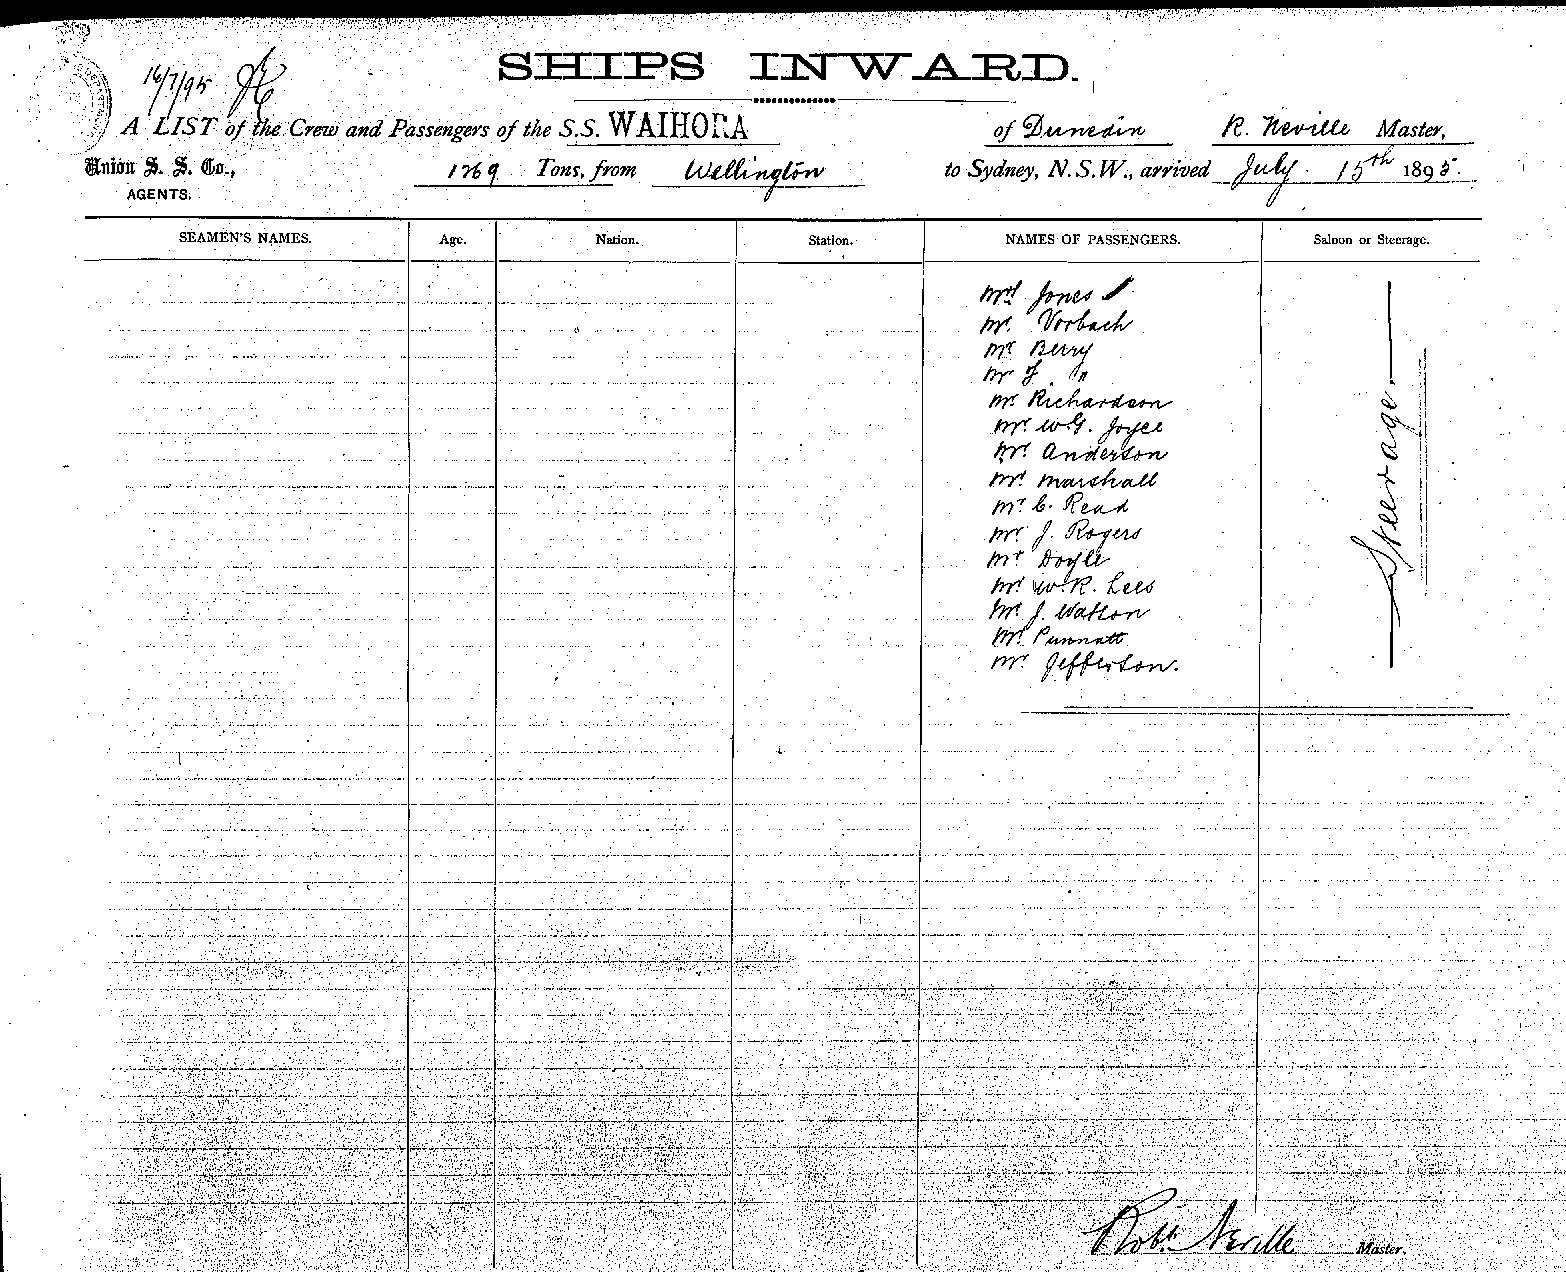 SHIPS INWARD.
16/7/95
A LIST of the Crew and Passengers of the S.S. WAIHORA of Dunedin R. Neville Master,
Union S. S. Co., 1269 Tons, from Wellington to Sydney, N.S.W., arrived July 15th 1895.
AGENTS.
SEAMEN'S NAMES. Age. Nation. Station. NAMES OF PASSENGERS. Saloon or Steerage.
Jones
Mr Vorbach
Mr Berry
Mr "
Mr Richardson
Mr W.G. Joyce
Mr Anderson
Mr Marshall
Mr C. Read
Mr J. Rogers
Mr Doyle
Mr W.R. Lees
Mr J. Watson
Mr Punnatt
Mr Jefferson.
Steerage.
Robt Neville Master.